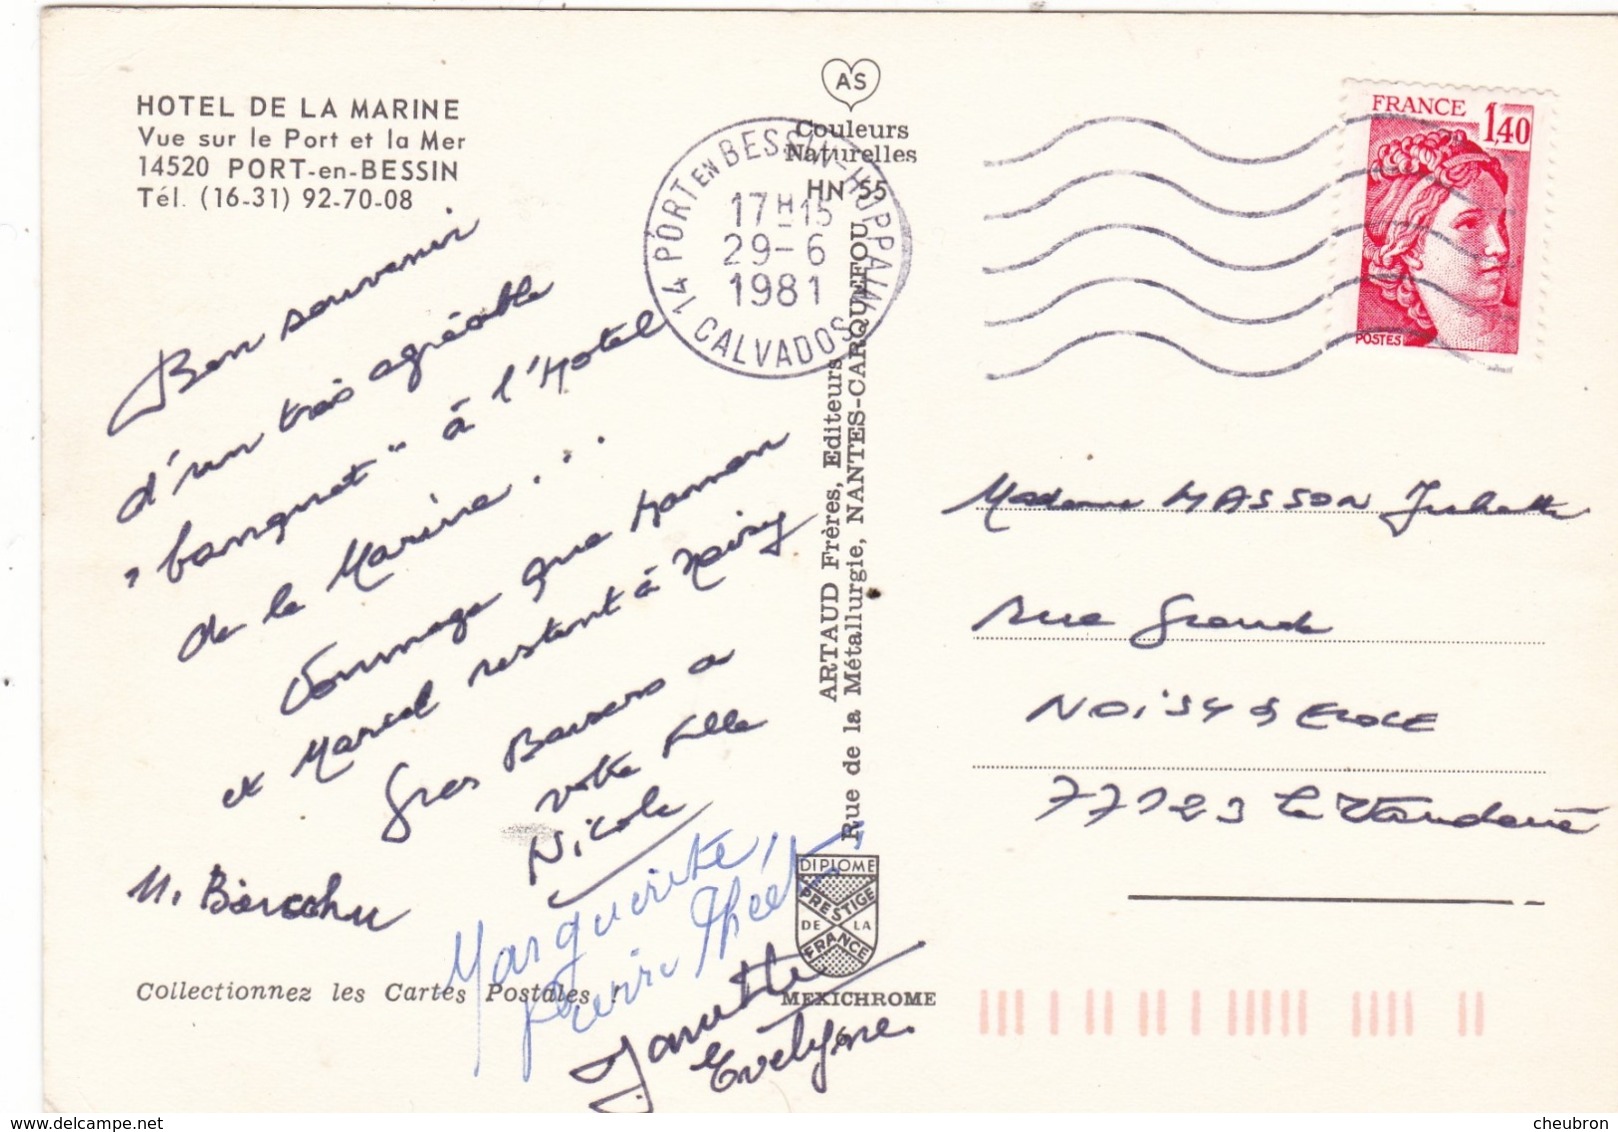 HOTEL DE LA MARINE
Vue sur le Port et la Mer
14520 PORT-en-BESSIN
Tél. (16-31) 92-70-08
Bon souvenir
d'un très agréable
"banquet" à l'Hotel
de la Marine...
Dommage que Maman
et Marcel restent à Noisy
Gros Baisers a
votre fille
Nicole
M.
Marguerite,
Janette
Evelyne.
Collectionnez les Cartes Postales !
AS
Couleurs
Naturelles
HN 55
14 PORT EN BESSIN-HUPPAIN
17H15
29-6
1981
CALVADOS
ARTAUD Frères, Editeurs
Rue de la Métallurgie, NANTES-CARQUEFOU
DIPLOME
PRESTIGE
DE LA
FRANCE
MEXICHROME
FRANCE
1,40
POSTES
Madame MASSON Juliette
rue Grande
NOISY S ECOLE
77123 Le Vaudoué
cheubron
delcampe.net